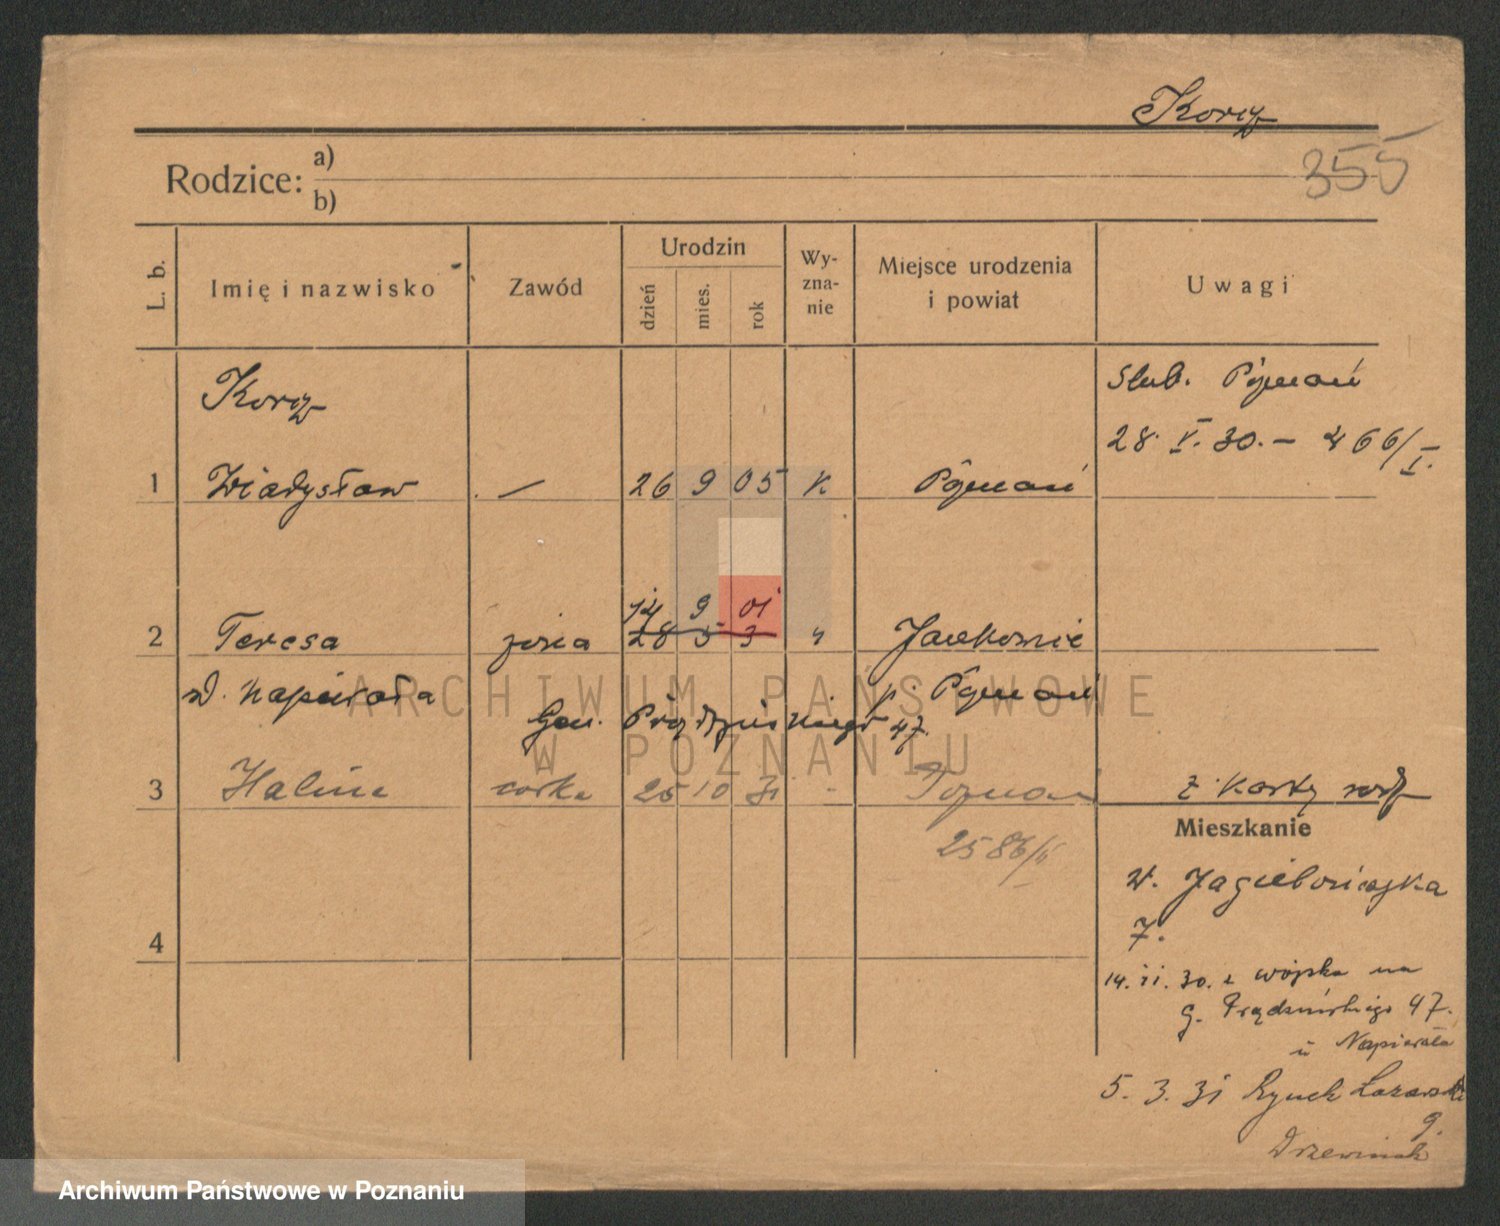 Korcz
355
Rodzice: a)
b)
L. b. Imię i nazwisko Zawód Urodzin dzień mies. rok Wy-zna-nie Miejsce urodzenia i powiat Uwagi
Korcz
Slub. Poznań
28. V. 30. - 466/I.
1 Władysław — 26 9 05 k Poznań
14 9 01
2 Teresa żona 28 5 3 " Jaektorowie
z d. Napierała p. Poznań
Gen. Prądzyńskiego 47.
3 Halina córka 25 10 31 - Poznań z karty
2586/II
Mieszkanie
W. Jagiellońska
7.
4
14. 11. 30. z wojska na
G. Prądzyńskiego 47.
u Napierała
5. 3. 31 Rynek Łazarski
9.
Drzewiński
ARCHIWUM PAŃSTWOWE
W POZNANIU
Archiwum Państwowe w Poznaniu